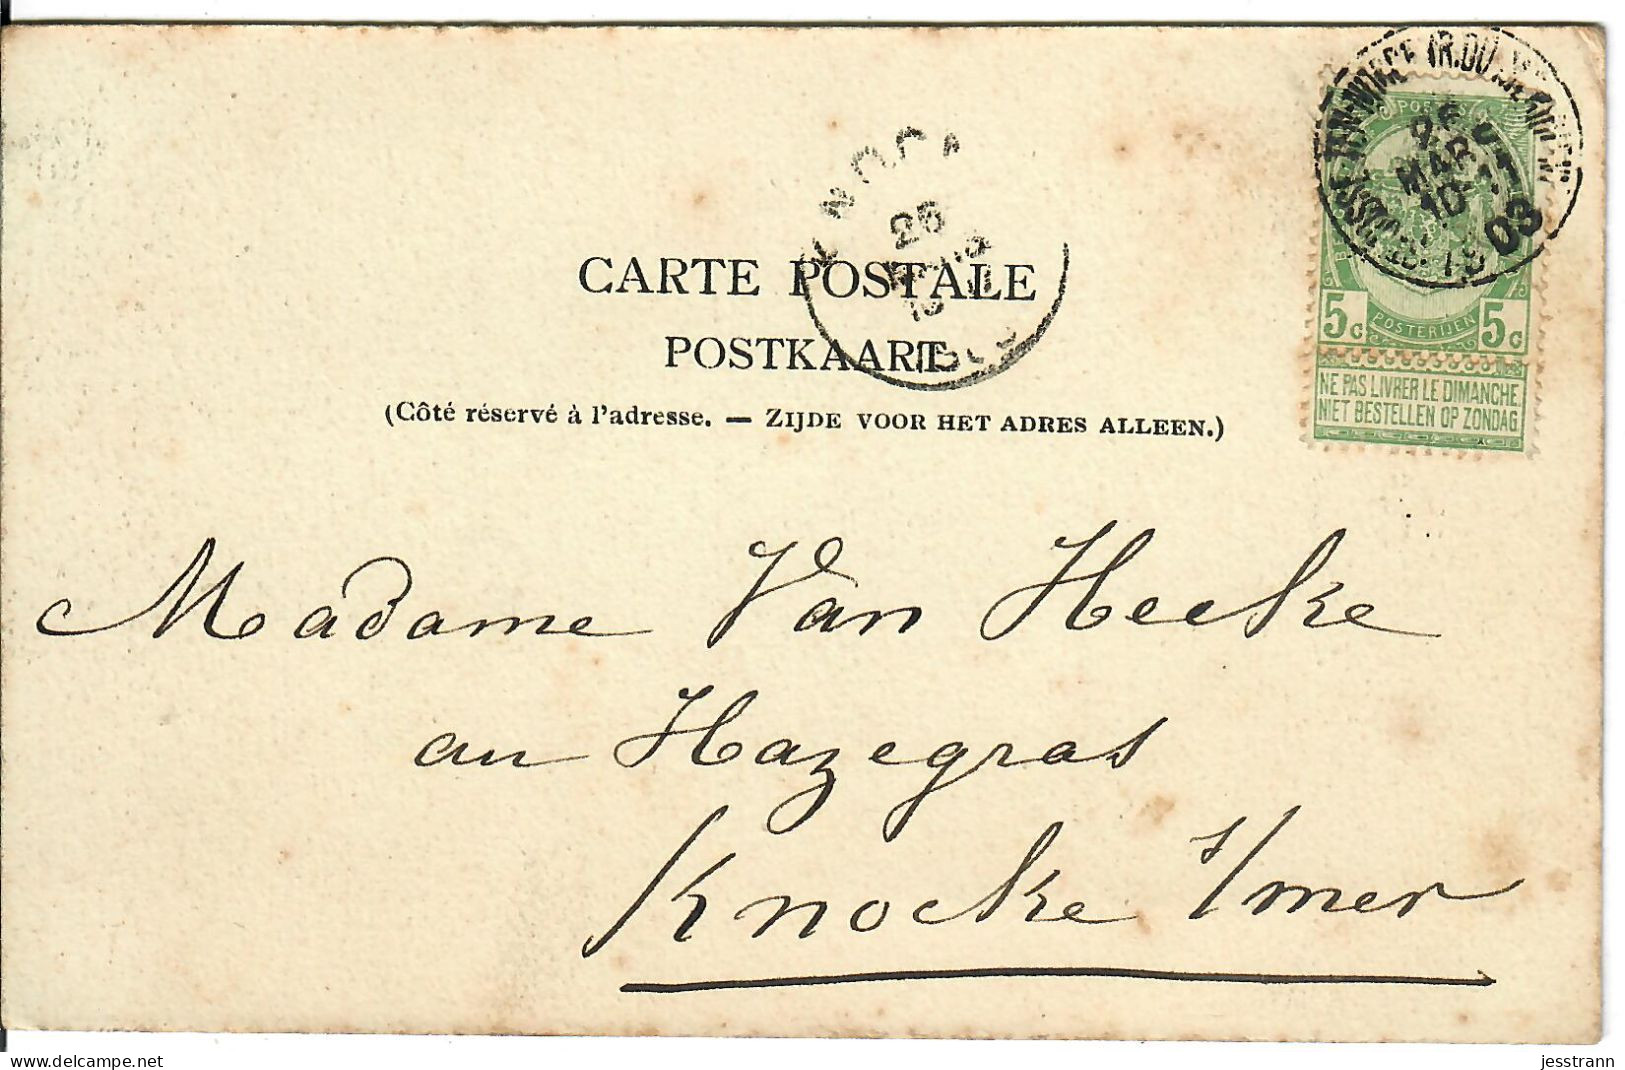 CARTE POSTALE
POSTKAART
(Côté réservé à l'adresse. — ZIJDE VOOR HET ADRES ALLEEN.)
POSTES
5c POSTERIJEN 5c
NE PAS LIVRER LE DIMANCHE
NIET BESTELLEN OP ZONDAG
MAR
10
03
26
Madame Van Hecke
au Hazegras
Knocke s/mer
delcampe.net
jesstrann